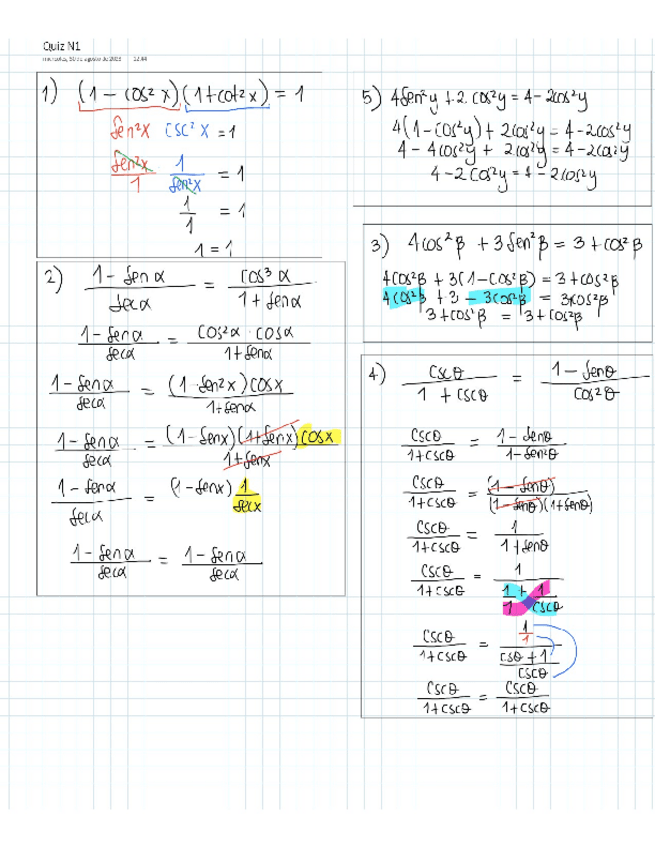 Quiz N1
miércoles, 30 de agosto de 2023 12:44
1) (1 - cos² x)(1+cot² x) = 1
sen²x csc² x = 1
sen²x/1 1/sen²x = 1
1/1 = 1
1 = 1
2) (1 - sen α)/sec α = cos³ α/(1 + sen α)
(1 - sen α)/sec α = (cos²α · cos α)/(1 + sen α)
(1 - sen α)/sec α = ((1 - sen²x) cos x)/(1 + sen α)
(1 - sen α)/sec α = ((1 - sen x)(1 + sen x) cos x)/(1 + sen x)
(1 - sen α)/sec α = (1 - sen x) 1/sec x
(1 - sen α)/sec α = (1 - sen α)/sec α
5) 4 sen²y + 2 cos²y = 4 - 2cos²y
4(1 - cos²y) + 2cos²y = 4 - 2cos²y
4 - 4cos²y + 2cos²y = 4 - 2cos²y
4 - 2 cos²y = 4 - 2cos²y
3) 4cos² β + 3 sen² β = 3 + cos² β
4cos²β + 3(1 - cos²β) = 3 + cos²β
4cos²β + 3 - 3cos²β = 3+cos²β
3 + cos²β = 3 + cos²β
4) csc θ/(1 + csc θ) = (1 - sen θ)/cos² θ
csc θ/(1 + csc θ) = (1 - sen θ)/(1 - sen² θ)
csc θ/(1 + csc θ) = (1 - sen θ)/((1 - sen θ)(1 + sen θ))
csc θ/(1 + csc θ) = 1/(1 + sen θ)
csc θ/(1 + csc θ) = 1/(1/1 + 1/csc θ)
csc θ/(1 + csc θ) = (1/1)/((csθ + 1)/csc θ)
csc θ/(1 + csc θ) = csc θ/(1 + csc θ)